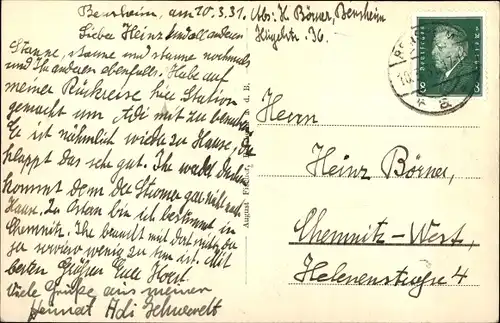 Bensheim, am 10.3.31. Abs: H. Börner, Bensheim
Hügelstr. 36.
Lieber Heinz und all anderen
Staune, staune und staune nochmals
und Ihr anderen ebenfalls. Habe auf
meiner Rückreise hier Station
gemacht um Adi mit zu besuchen.
Er ist nähmlich wieder zu Hause, da
klappt das sehr gut. Ihr
kommt denn der gar nicht nach
Hause. Zu Ostern bin ich bestimmt in
Chemnitz. Ihr braucht mit dort
zu wenig zu tun ist. Mit
besten Grüßen Euer Horst
Viele Grüße aus meiner
Heimat Adi
Deutsches Reich
8 8
August
Herrn
Heinz Börner,
Chemnitz-West,
Helenenstraße 4